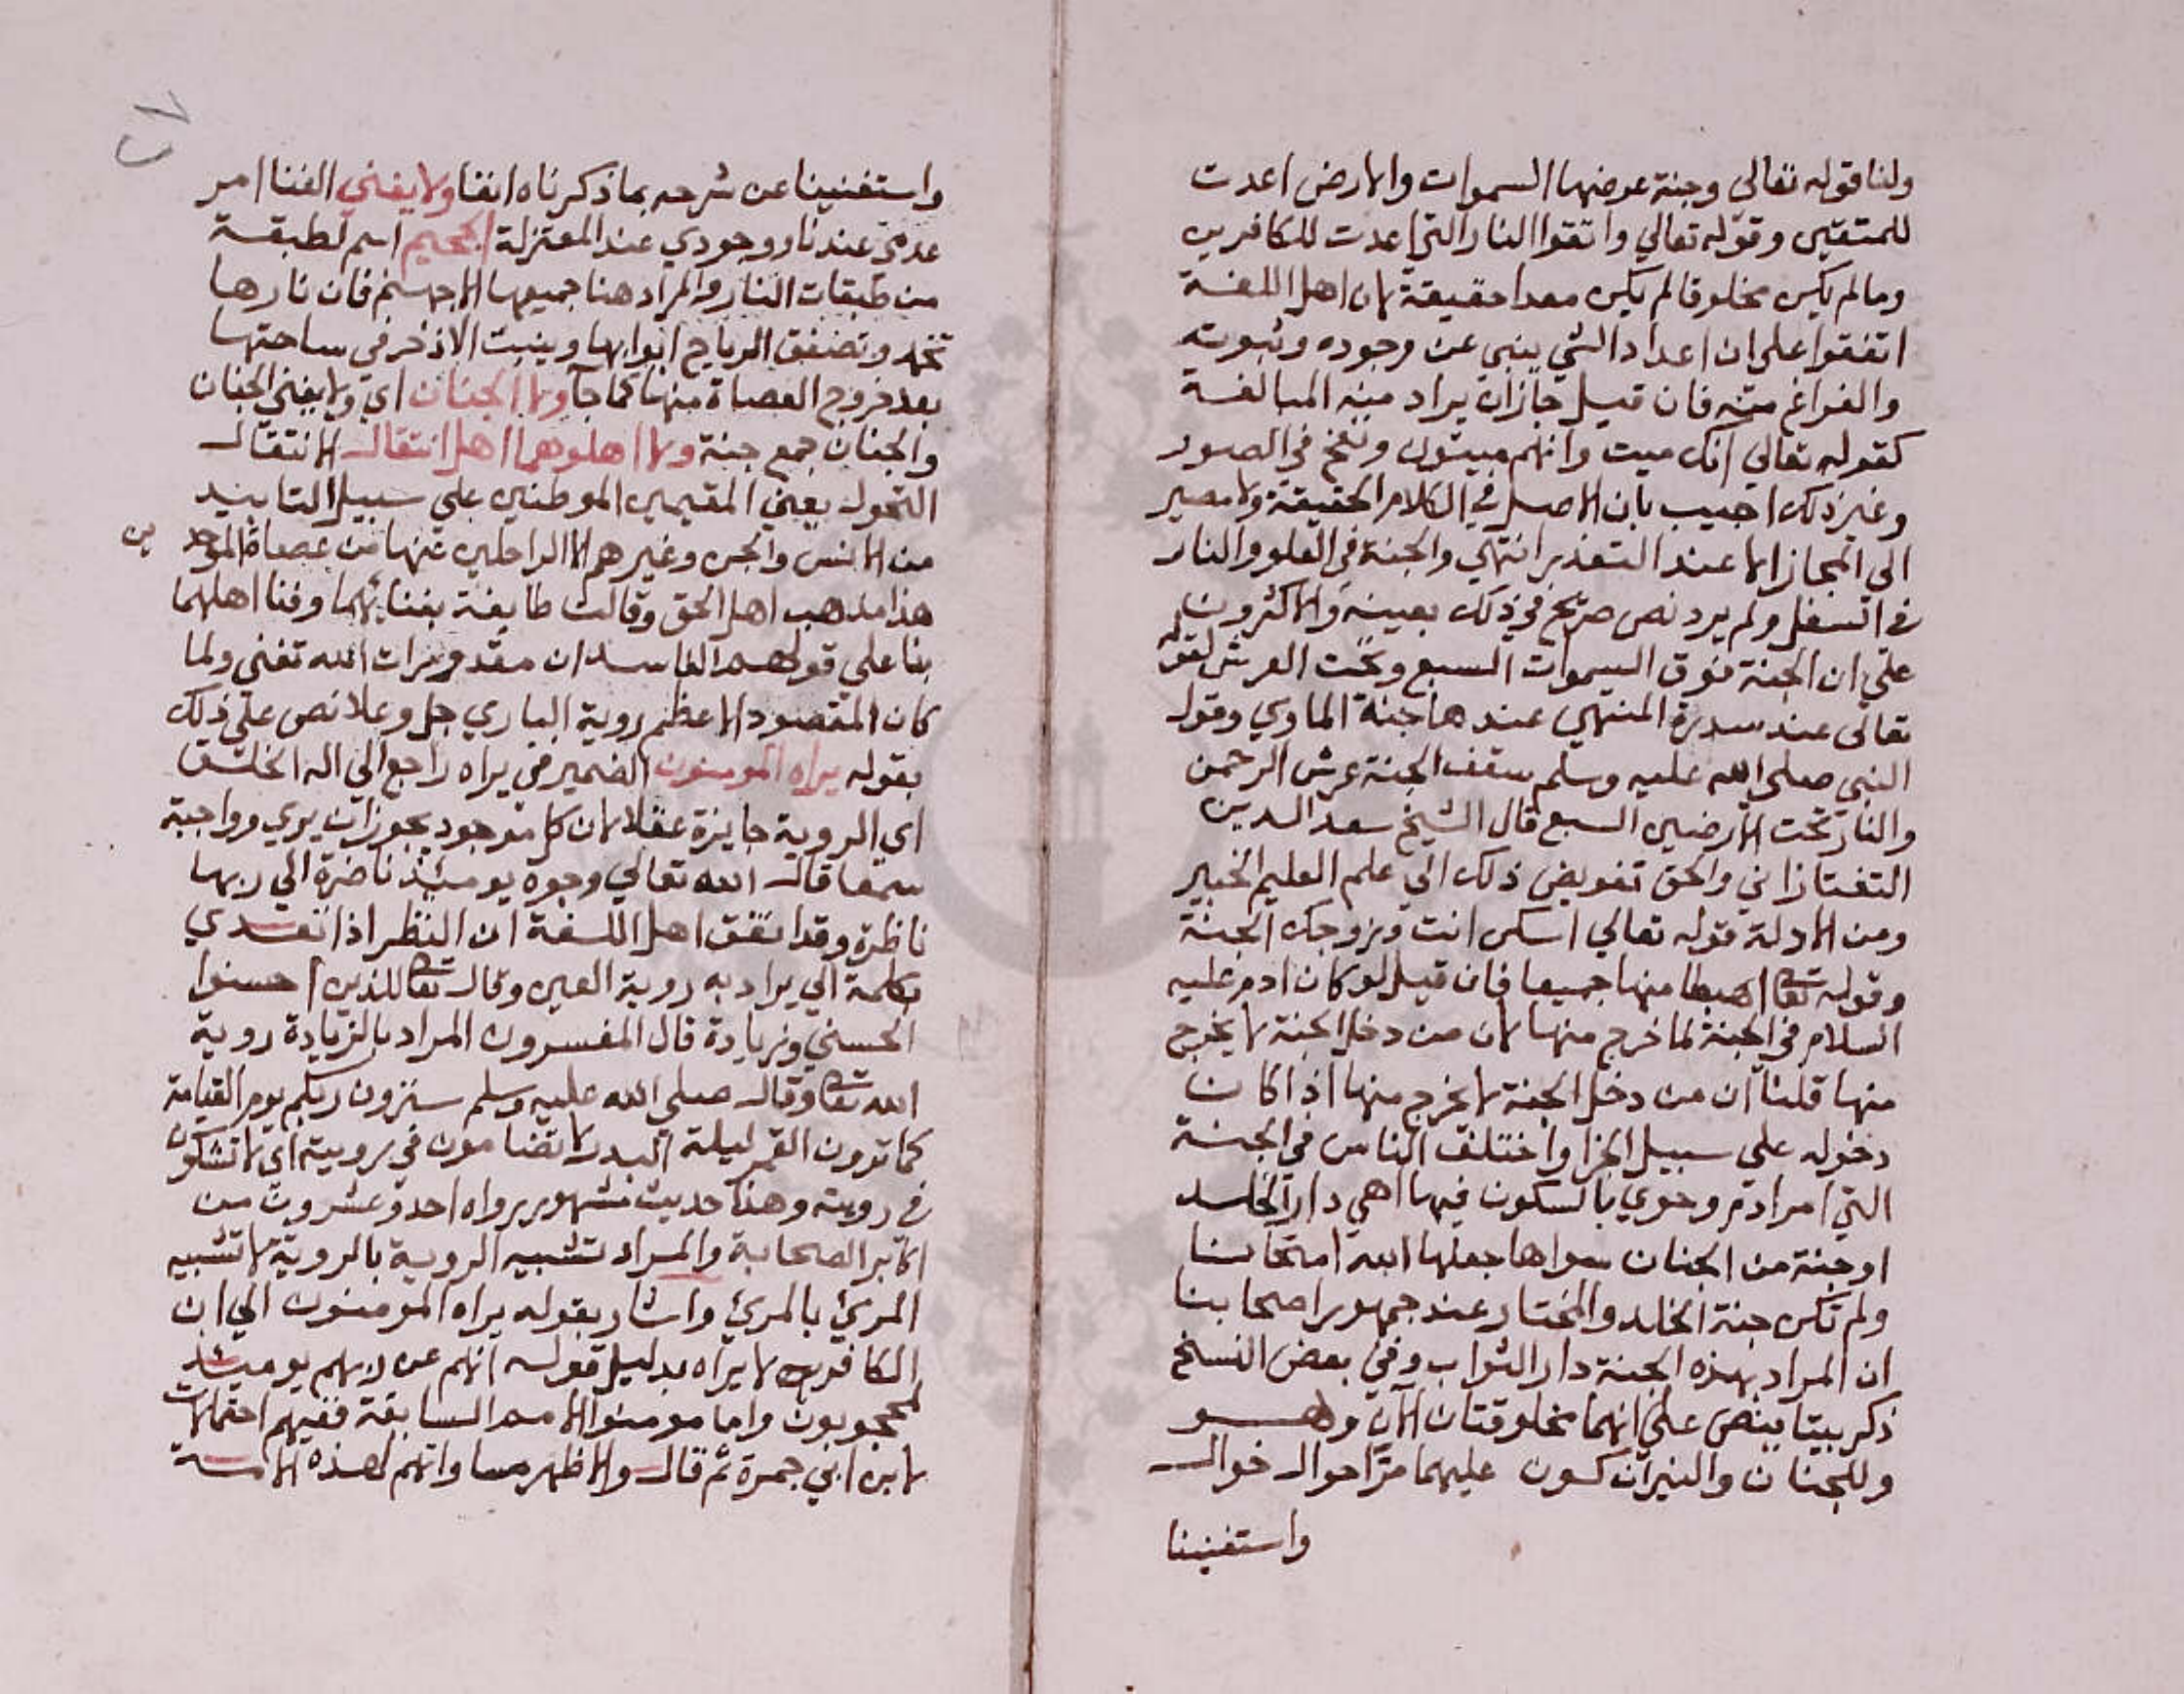 ولنا قوله تعالى وجنة عرضها السموات والارض اعدت
للمتقين وقوله تعالي واتقوا النار التي اعدت للكافرين
وما لم يكن مخلوقا لم يكن معدا حقيقة لان اهل اللغة
اتفقوا على ان اعداد الشي ينبي عن وجوده وثبوته
والفراغ منه فان قيل جاز ان يراد منه المبالغة
كقوله تعالي انك ميت وانهم ميتون ونفخ في الصور
وغير ذلك اجيب بان الاصل في الكلام الحقيقة ولا مصير
الى المجاز الا عند التعذر انتهي والجنة في العلو والنار
في السفل ولم يرد نص صريح في ذلك بعينه والاكثرون
علي ان الجنة فوق السموات السبع وتحت العرش لقوله
تعالى عند سدرة المنتهي عندها جنة الماوي وقول
النبي صلى الله عليه وسلم سقف الجنة عرش الرحمن
والنار تحت الارضين السبع قال الشيخ سعد الدين
التفتازاني والحق تفويض ذلك الي علم العليم الخبير
ومن الادلة قوله تعالي اسكن انت وزوجك الجنة
وقوله تعا اهبطا منها جميعا فان قيل لو كان ادم عليه
السلام في الجنة لما خرج منها لان من دخل الجنة لا يخرج
منها قلنا ان من دخل الجنة لا يخرج منها اذا كان
دخوله علي سبيل الجزا واختلف الناس في الجنة
التي امر ادم وحوي بالسكون فيها اهي دار الخلد
او جنة من الجنان سواها جعلها الله امتحانا
ولم تكن جنة الخلد والمختار عند جمهور اصحابنا
ان المراد بهذه الجنة دار الثواب وفي بعض النسخ
ذكر بيتا ينص علي انهما مخلوقتان الآن وهو
وللجنان والنيران كون عليهما مرّ احوال خوال
واستغنينا
٢٧
واستغنينا عن شرحه بما ذكرناه انفا ولا يفني الفنا امر
عدمي عندنا ووجودي عند المعتزلة الجحيم اسم لطبقة
من طبقات النار والمراد هنا جميعها الا جهنم فان نارها
تخمد وتصفق الرياح ابوابها وينبت الاذخر في ساحتها
بعد خروج العصاة منها كما جآ ولا الجنان اي ولا يفني الجنان
والجنان جمع جنة ولا اهلوهما اهل انتقال الانتقال
التحول يعني المقيمين الموطنين علي سبيل التابيد
من الانس والجن وغيرهم الا الداخلين منها من عصاة الموحدين
هذا مذهب اهل الحق وقالت طايفة بفنائهما وفنا اهلهما
بنا على قولهم الفاسد ان مقدورات الله تفنى ولما
كان المقصود الاعظم روية الباري جل وعلا نص على ذلك
بقوله يراه المومنون الضمير في يراه راجع الي اله الخلق
اي الروية جايزة عقلا لان كل موجود يجوز ان يري وواجبة
سمعا قال الله تعالي وجوه يومئذ ناضرة الي ربها
ناظرة وقد اتفق اهل اللغة ان النظر اذا تعدي
بكلمة الي يراد به روية العين وقال تعا للذين احسنوا
الحسني وزيادة قال المفسرون المراد بالزيادة روية
الله تعا وقال صلى الله عليه وسلم سترون ربكم يوم القيامة
كما ترون القمر ليلة البدر لا تضامون في رويته اي لا تشكون
في رويته وهذا حديث مشهور رواه احد وعشرون من
اكابر الصحابة والمراد تشبيه الروية بالروية لا تشبيه
المرئ بالمرئ واشار بقوله يراه المومنون الي ان
الكافرون لا يراه بدليل قوله انهم عن ربهم يومئذ
لمحجوبون واما مومنوا الامم السابقة ففيهم احتمالات
لابن ابي جمرة ثم قال والاظهر مساواتهم لهذه الامة